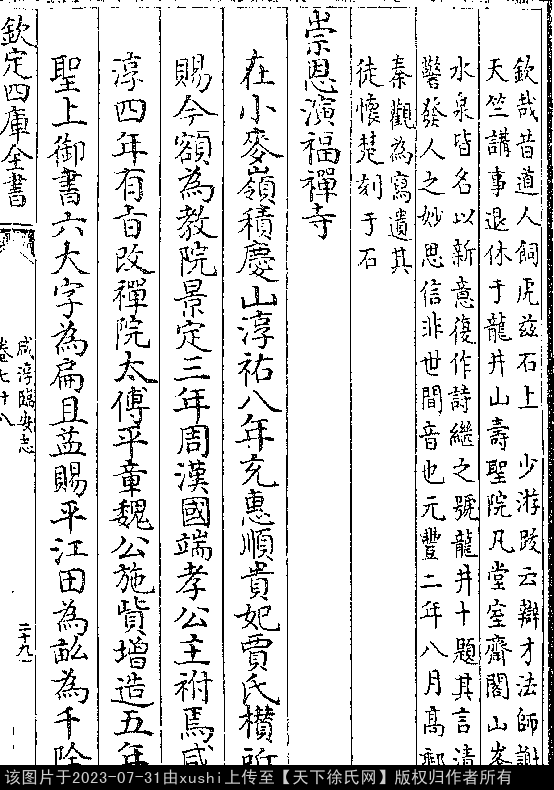 欽哉昔道人飼虎茲石上　少游跋云辯才法師謝
天竺講事退休于龍井山壽聖院凡堂室齋閣山峯
水泉皆名以新意復作詩繼之號龍井十題其言清
警發人之妙思信非世間音也元豐二年八月高郵
秦觀為寫遺其
徒懷楚刻于石
崇恩演福禪寺
在小麥嶺積慶山淳祐八年充惠順貴妃賈氏櫕所
賜今額為教院景定三年周漢國端孝公主祔焉咸
淳四年有旨改禪院太傅平章魏公施貲增造五年
聖上御書六大字為扁且葢賜平江田為畝為千除
欽定四庫全書
咸淳臨安志
卷七十八
二十九
该图片于2023-07-31由xushi上传至【天下徐氏网】版权归作者所有